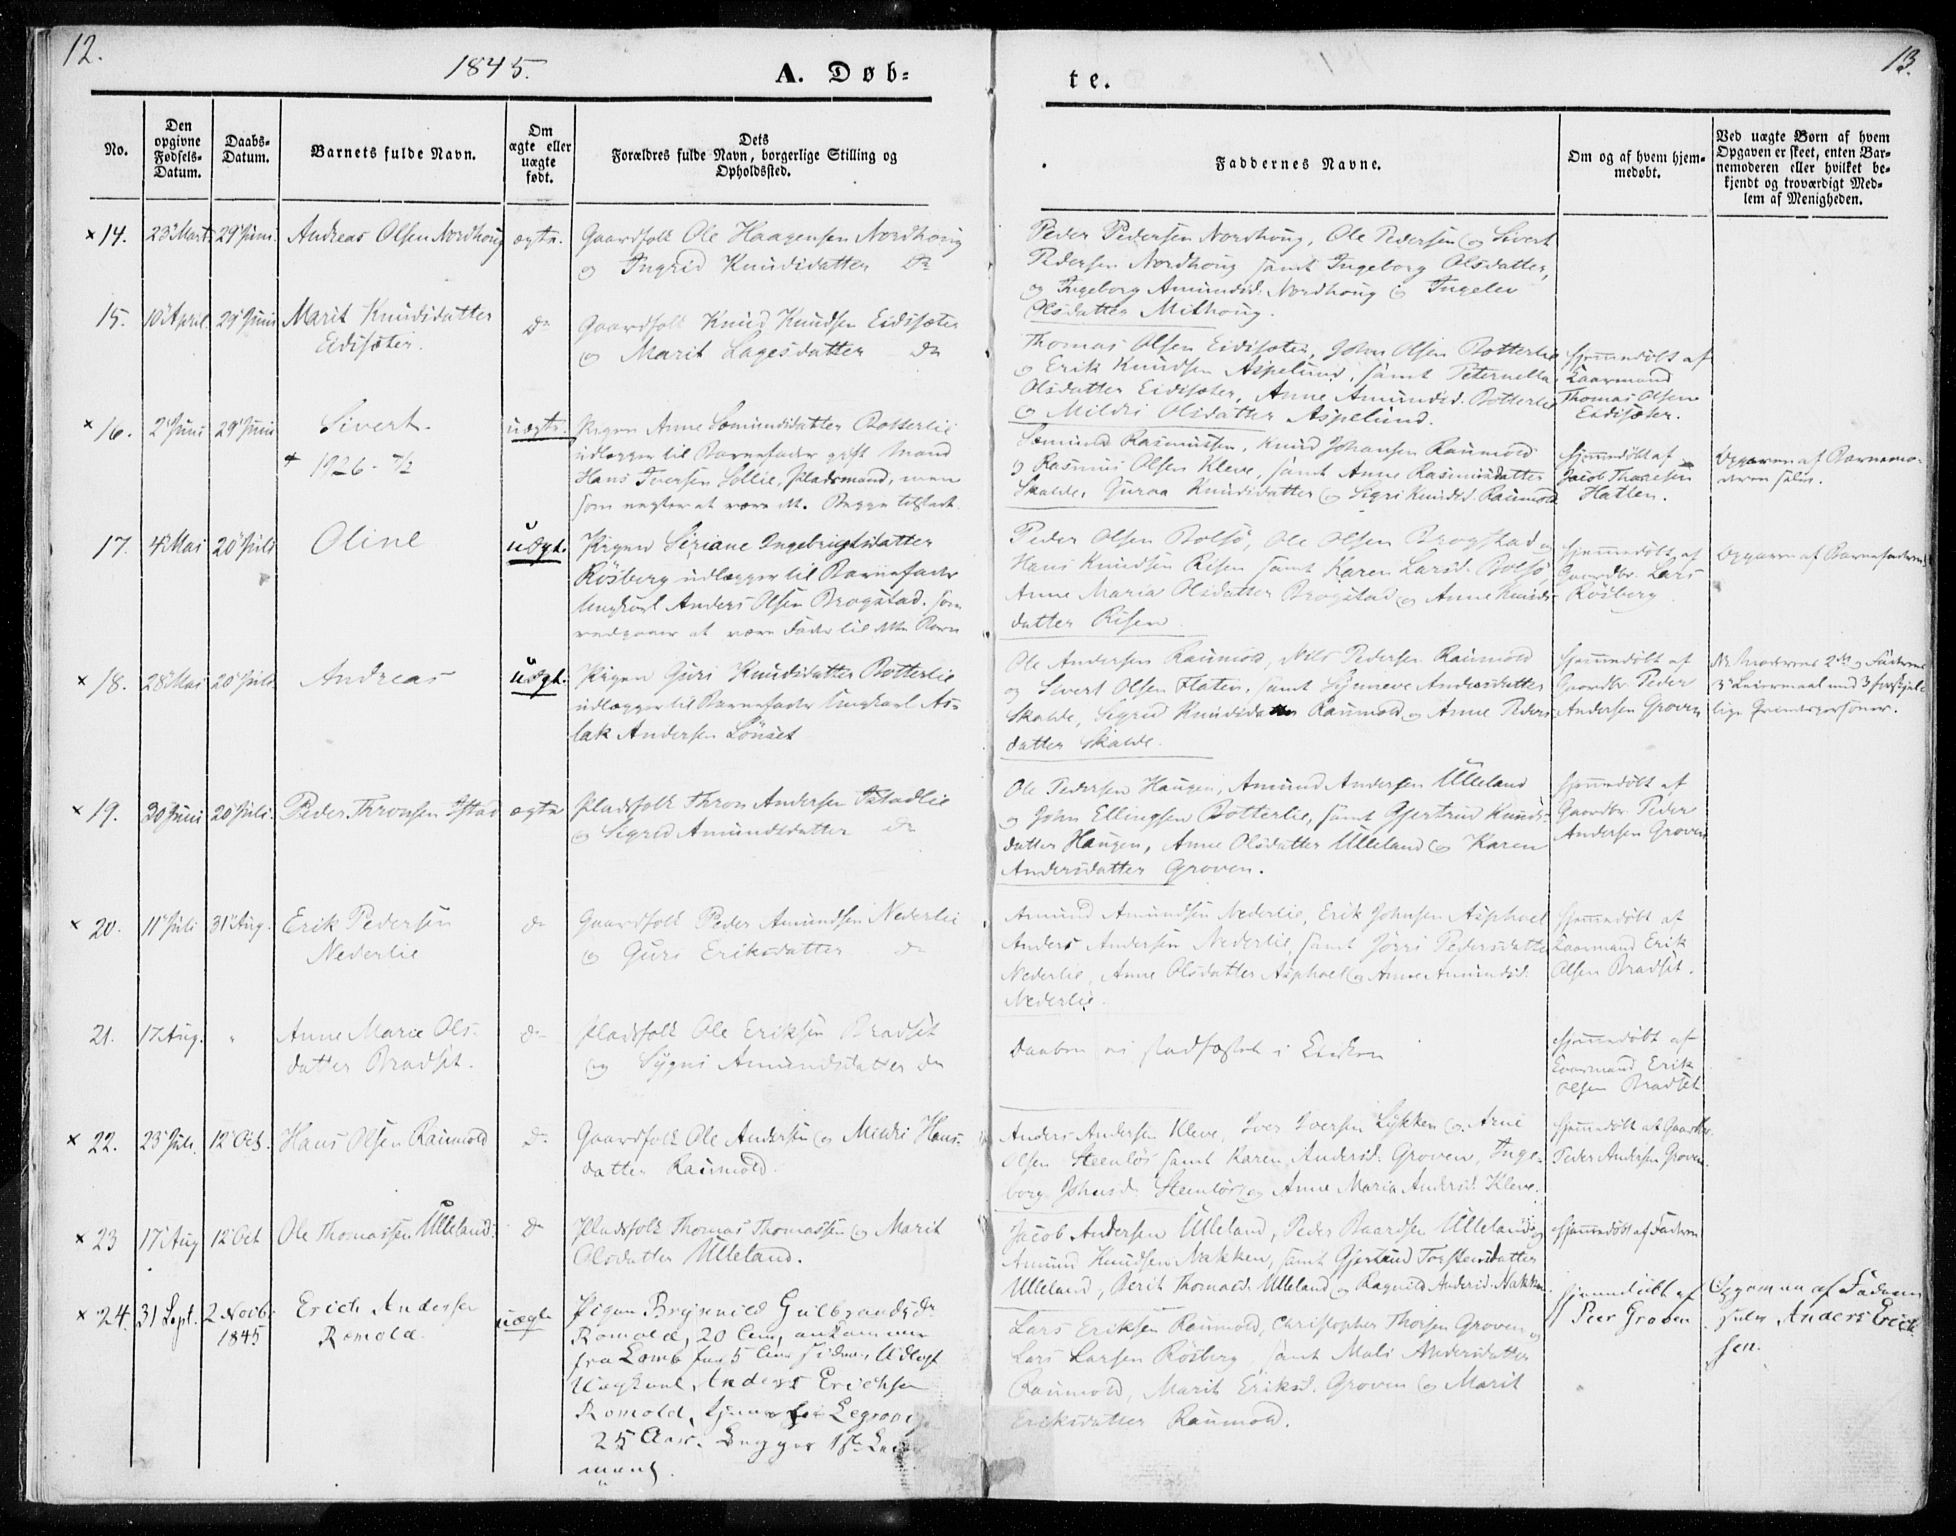 12.
1845.
A. Døb=
te.
13.
No.
Den opgivne Fødsels-Datum.
Daabs-Datum.
Barnets fulde Navn.
Om ægte eller uægte født.
Dets Forældres fulde Navn, borgerlige Stilling og Opholdssted.
Faddernes Navne.
Om og af hvem hjemmedøbt.
Ved uægte Børn af hvem Opgaven er skeet, enten Barnemoderen eller hvilket bekjendt og troværdigt Medlem af Menigheden.
× 14. 23 Marts 29 Juni Andreas Olsen Nordhoug ægte.
Gaardfolk Ole Haagensen Nordhoug
og Ingrid Knudsdatter Do
Peder Pedersen Nordhoug, Ole Pedersen og Sivert
Pedersen Nordhoug samt Ingeborg Olsdatter,
og Ingeborg Amundsd. Nordhoug og Ingelev
Olsdatter Mithoug.
15. 10 April 29 Juni Marit Knudsdatter
Eidsæter.
Do
Gaardfolk Knud Knudsen Eidsæter
og Marit Lagesdatter Do
Thomas Olsen Eidsæter, John Olsen Botterlie
og Erik Knudsen Aspelund, samt Peternella
Olsdatter Eidsæter, Anne Amundsd. Botterlie
og Mildri Olsdatter Aspelund.
Hjemmedøbt af
Laarmand
Thomas Olsen
Eidsæter.
× 16. 2 Juni 29 Juni Sivert.
+ 1926 - 7/2
uægte.
Pigen Anne Sæmundsdatter Botterlie
udlægger til Barnefader gift Mand
Hans Iversen Sollie, Pladsmand, men
som negter at være det. Begge tilstede.
Sæmund Rasmussen, Knud Johansen Raumold
og Rasmus Olsen Kleve, samt Anne Rasmusdatter
Skalde, Guroa Knudsdatter og Sigri Knudsd. Raumold
Hjemmedøbt af
Jacob Thoresen
Hatlen.
Opgaven af Barnemo-
deren selv.
17. 4 Mai 20 Juli Oline uægt.
Pigen Siriane Ingebrigtsdatter
Rösberg udlægger til Barnefader
Ungkarl Anders Olsen Brogstad. som
vedgaaer at være Fader til dette Barn
Peder Olsen Bolsö, Ole Olsen Brogstad og
Hans Knudsen Risen samt Karen Larsd. Bolsö,
Anne Maria Olsdatter Brogstad og Anne Knuds-
datter Risen.
Hjemmedøbt af
Gaardbr. Lars
Rösberg
Opgaven af Barnefaderen
× 18. 28 Mai 20 Juli Andreas uægt.
Pigen Guri Knudsdatter Botterlie
udlægger til Barnefader Ungkarl As-
lak Andersen Lönset
Ole Andersen Raumold, Nils Pedersen Raumold
og Sivert Olsen Flaten, samt Synneve Andersdatter
Skalde, Sigrid Knudsdatter Raumold og Anne Peders-
datter Skalde.
Hjemmedøbt af
Gaardbr. Peder
Andersen Groven
Moderens 2det og Faderens
3die Leiermaal med 3 forskjel-
lige Qvindespersoner.
× 19. 30 Juni 20 Juli. Peder Thronsen Istad ægte
Pladsfolk Thron Andersen Istadlie
og Sigrid Amundsdatter Do
Ole Pedersen Haugen, Amund Andersen Ulleland
og John Ellingsen Botterlie, samt Gjertrud Knuds-
datter Haugen, Anne Olsdatter Ulleland og Karen
Andersdatter Groven.
Hjemmedøbt af
Gaardbr. Peder
Andersen Groven
× 20. 11 Juli 31 Aug. Erik Pedersen
Nederlie
Do
Gaardfolk Peder Amundsen Nederlie
og Guri Eriksdatter Do
Amund Amundsen Nederlie, Erik Johnsen Asphoel
Anders Andersen Nederlie, samt Jörri Pedersdatter
Nederlie, Anne Olsdatter Asphoel og Anne Amundsd.
Nederlie.
Hjemmedøbt af
Laarmand Erik
Olsen Bradsit.
21. 17 Aug. " Anne Marie Ols-
datter Bradsit.
Do
Pladsfolk Ole Eriksen Bradsit
og Sygni Amundsdatter Do
Daaben ei stadfæstet i Kirken
Hjemmedøbt af
Laarmand Erik
Olsen Bradsit
× 22. 23 Juli. 12 Oct. Hans Olsen Raumold Do
Gaardfolk Ole Andersen og Mildri Hans-
datter Raumold.
Anders Andersen Kleve, Iver Iversen Lykken og Arne
Olsen Steenlös samt Karen Andersd. Groven, Inge-
borg Johnsd. Steenlös og Anne Maria Andersd. Kleve.
Hjemmedøbt af Gaardbr.
Peder Andersen Groven.
× 23 17 Aug 12 Oct Ole Thomassen Ulleland. Do
Pladsfolk Thomas Thomassen og Marit
Olsdatter Ulleland.
Jacob Andersen Ulleland, Peder Baardsen Ulleland og
Amund Knudsen Nakken, samt Gjertrud Torstensdatter
Ulleland, Berit Thomasd. Ulleland og Ragnild Andersd. Nakken
Hjemmedøbt af Faderen
× 24. 31 Sept. 2 Novbr
1845
Erich Andersen
Romold.
uægte
Pigen Brynnild Gulbrandsdr
Romold, 20 Aar, ankommen
fra Lomb for 5 Aar siden, Udlagt
Ungkarl Anders Erichsen
Romold, tjener
25 Aar. Begges 1ste Leier
maal.
Lars Eriksen Raumold, Christopher Thorsen Groven og
Lars Larsen Rösberg, samt Mali Andersdatter
Raumold, Marit Eriksd. Groven og Marit
Eriksdatter Raumold.
Hjemmedøbt af
Peer Groven
Opgaven af Faderen
selv Anders Erich-
sen.